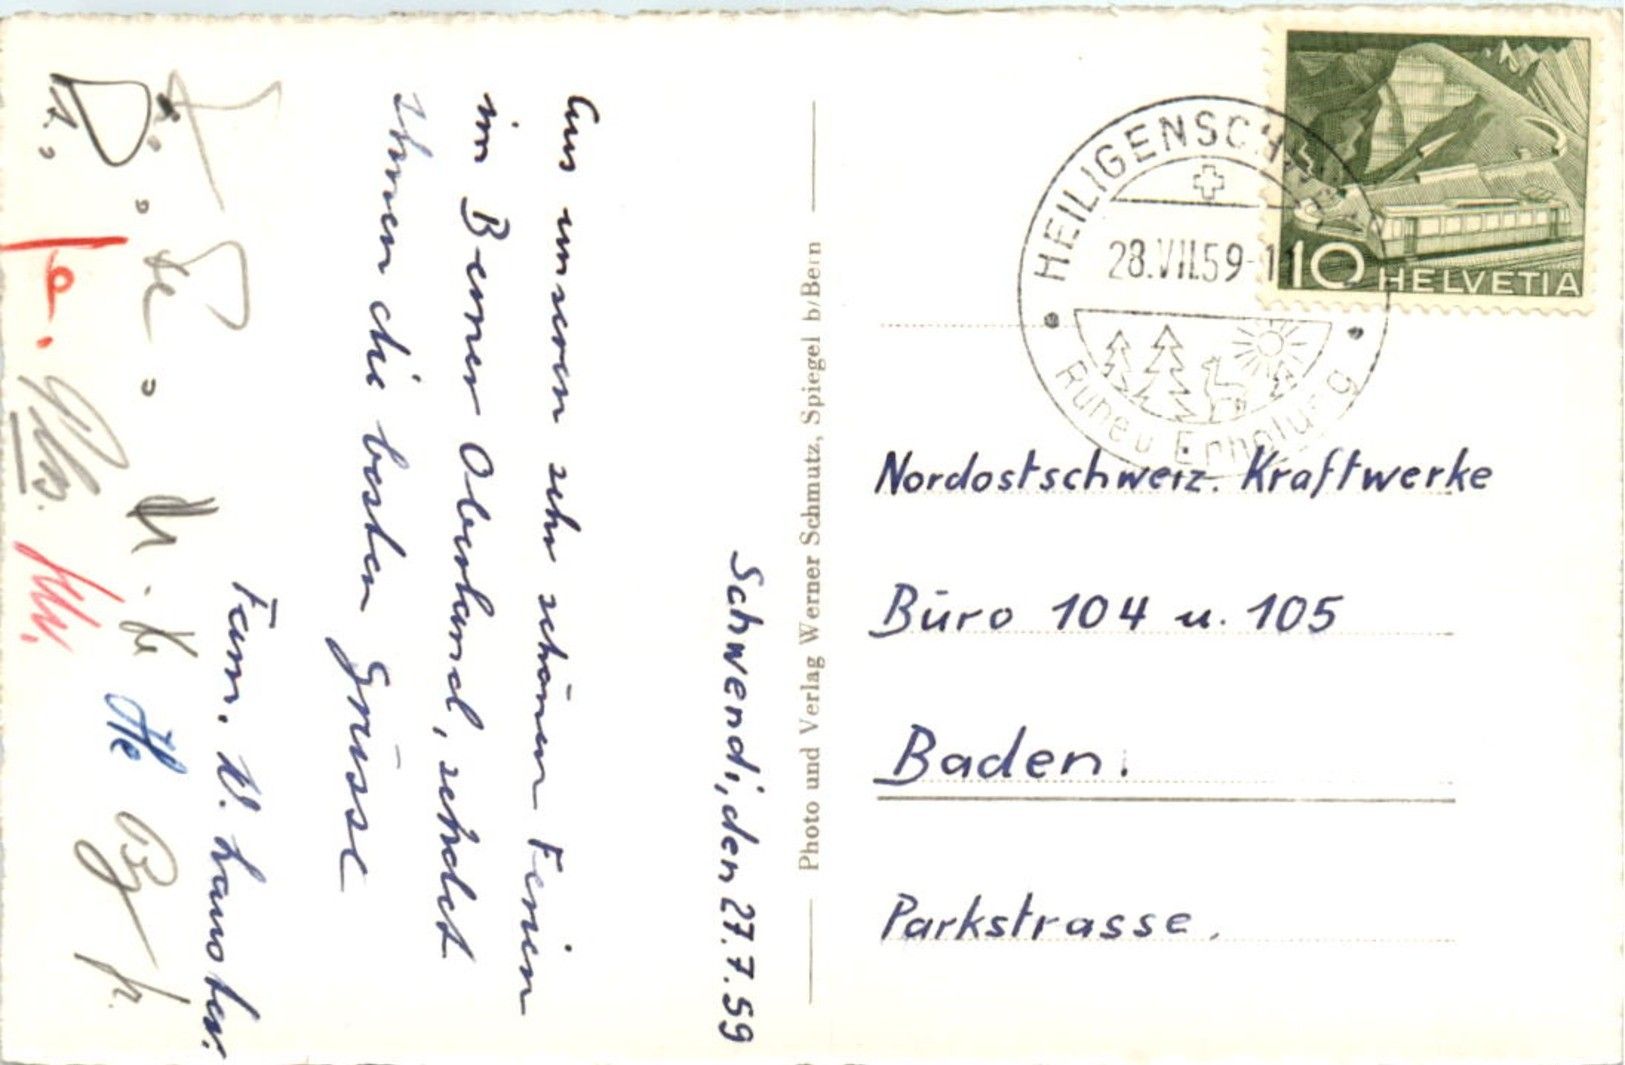 Schwendi, den 27.7.59
Aus unseren sehr schönen Ferien
im Berner Oberland, sendet
Ihnen die besten Grüsse
Fam. W.
Photo und Verlag Werner Schmutz, Spiegel b/Bern
HEILIGENSCHWENDI
28.VII.59-11
Ruhe u Erholung
10 HELVETIA
Nordostschweiz. Kraftwerke
Büro 104 u. 105
Baden.
Parkstrasse.